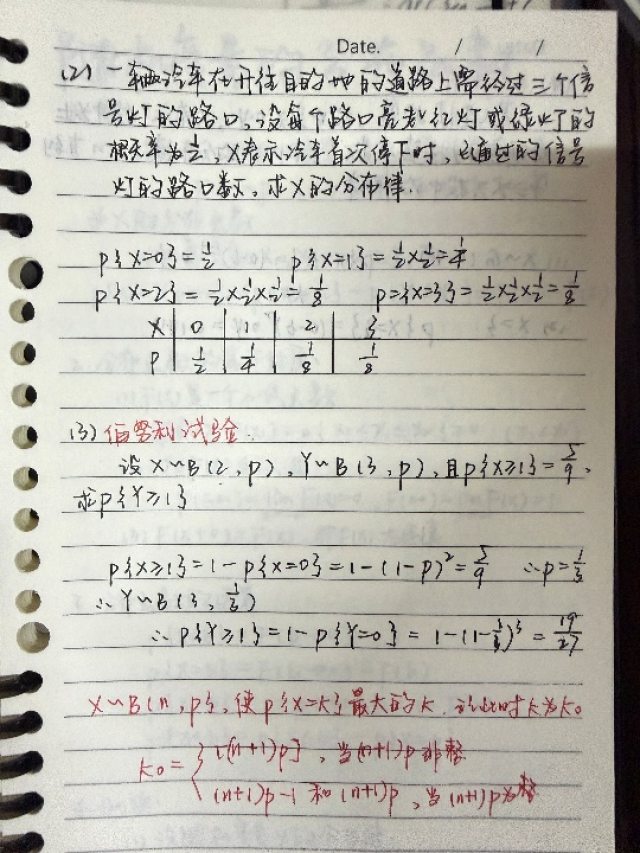 Date. / /
(2) 一辆汽车在开往目的地的道路上需经过三个信
号灯的路口,设每个路口亮起红灯或绿灯的
概率为½,X表示汽车首次停下时,已通过的信号
灯的路口数,求X的分布律.
P{X=0}=1/2 P{X=1}=1/2×1/2=1/4
P{X=2}=1/2×1/2×1/2=1/8 P={X=3}=1/2×1/2×1/2=1/8
X 0 1 2 3
P 1/2 1/4 1/8 1/8
(3) 伯努利试验.
设X~B(2,p),Y~B(3,p),且P{X≥1}=5/9,
求P{Y≥1}
P{X≥1}=1-P{X=0}=1-(1-p)²=5/9 ∴p=1/3
∴Y~B(3,1/3)
∴P{Y≥1}=1-P{Y=0}=1-(1-1/3)³=19/27
X~B(n,p},使P{X=k}最大的k.记此时k为k₀
k₀={[(n+1)p],当(n+1)p非整
(n+1)p-1和(n+1)p,当(n+1)p为整